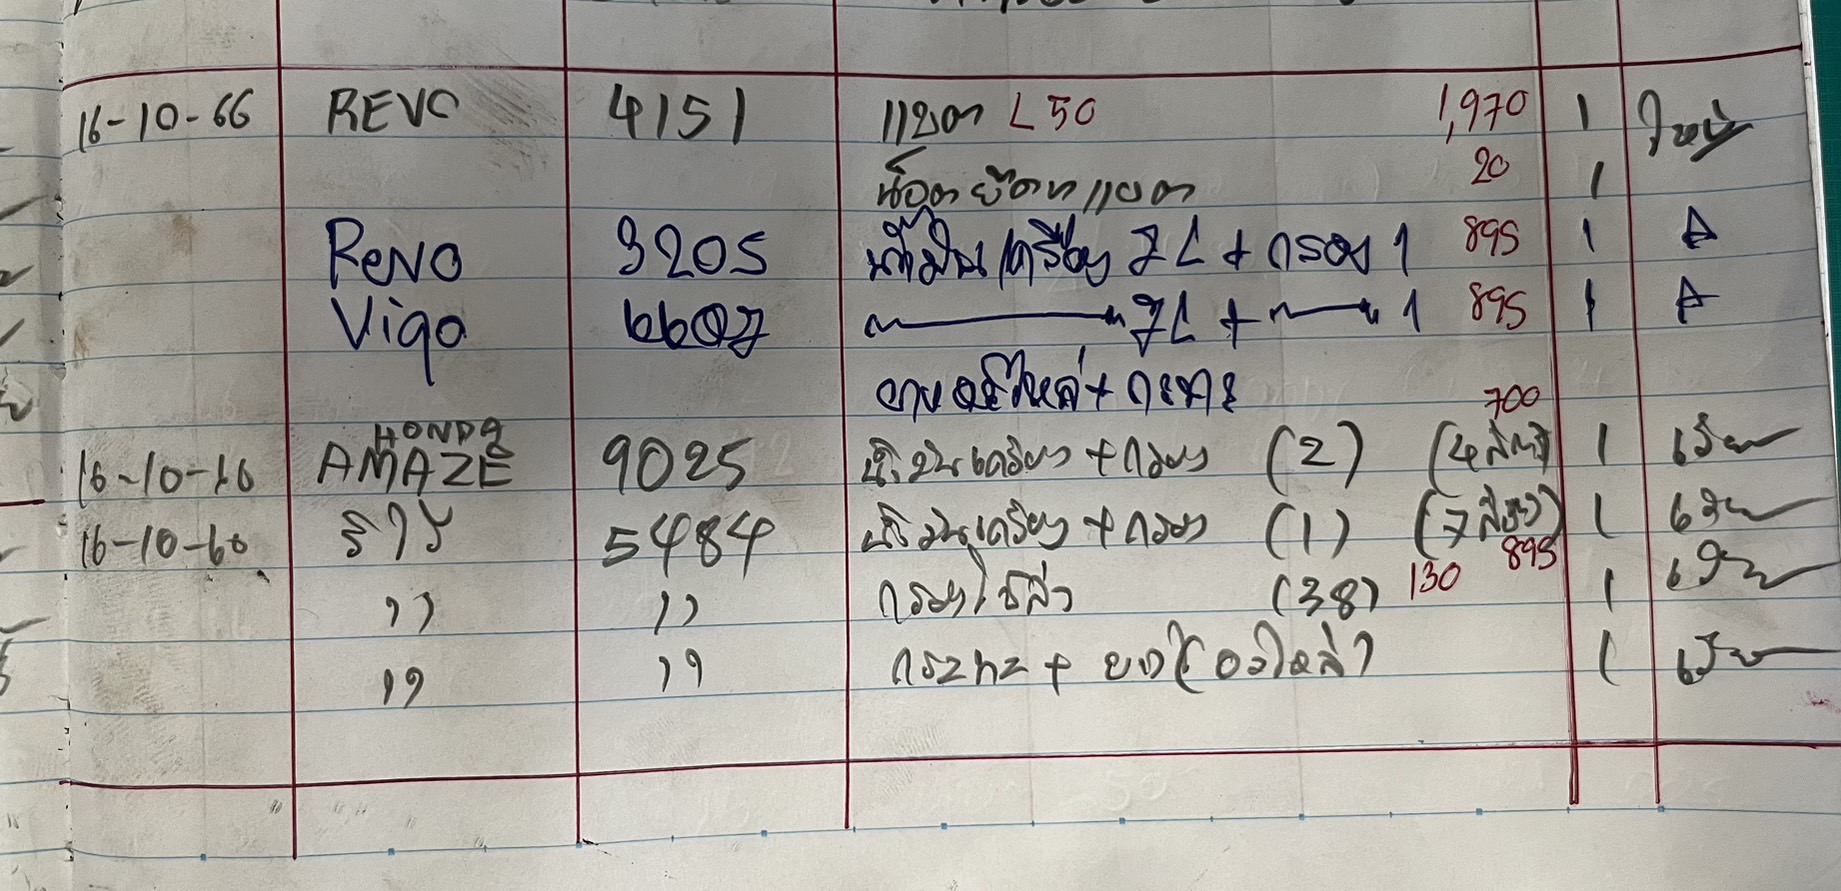 16-10-66 REVO 4151 แบต L50 1,970 1 ใหม่
น็อตยึดแบต 20 1
ReVO 3205 น้ำมันเครื่อง 7L + กรอง 1 895 1 A
Vigo 6607 〃 7L + 〃 1 895 1 A
ยางอะไหล่ + กะทะ
16-10-16 HONDA AMAZE 9025 น้ำมันเครื่อง + กรอง (2) (4 ลิตร) 700 1
16-10-66 5484 น้ำมันเครื่อง + กรอง (1) (7 ลิตร) 895 1
,, ,, กรองโซล่า (38) 130 1
,, ,, กระทะ + ยาง (อะไหล่) 1